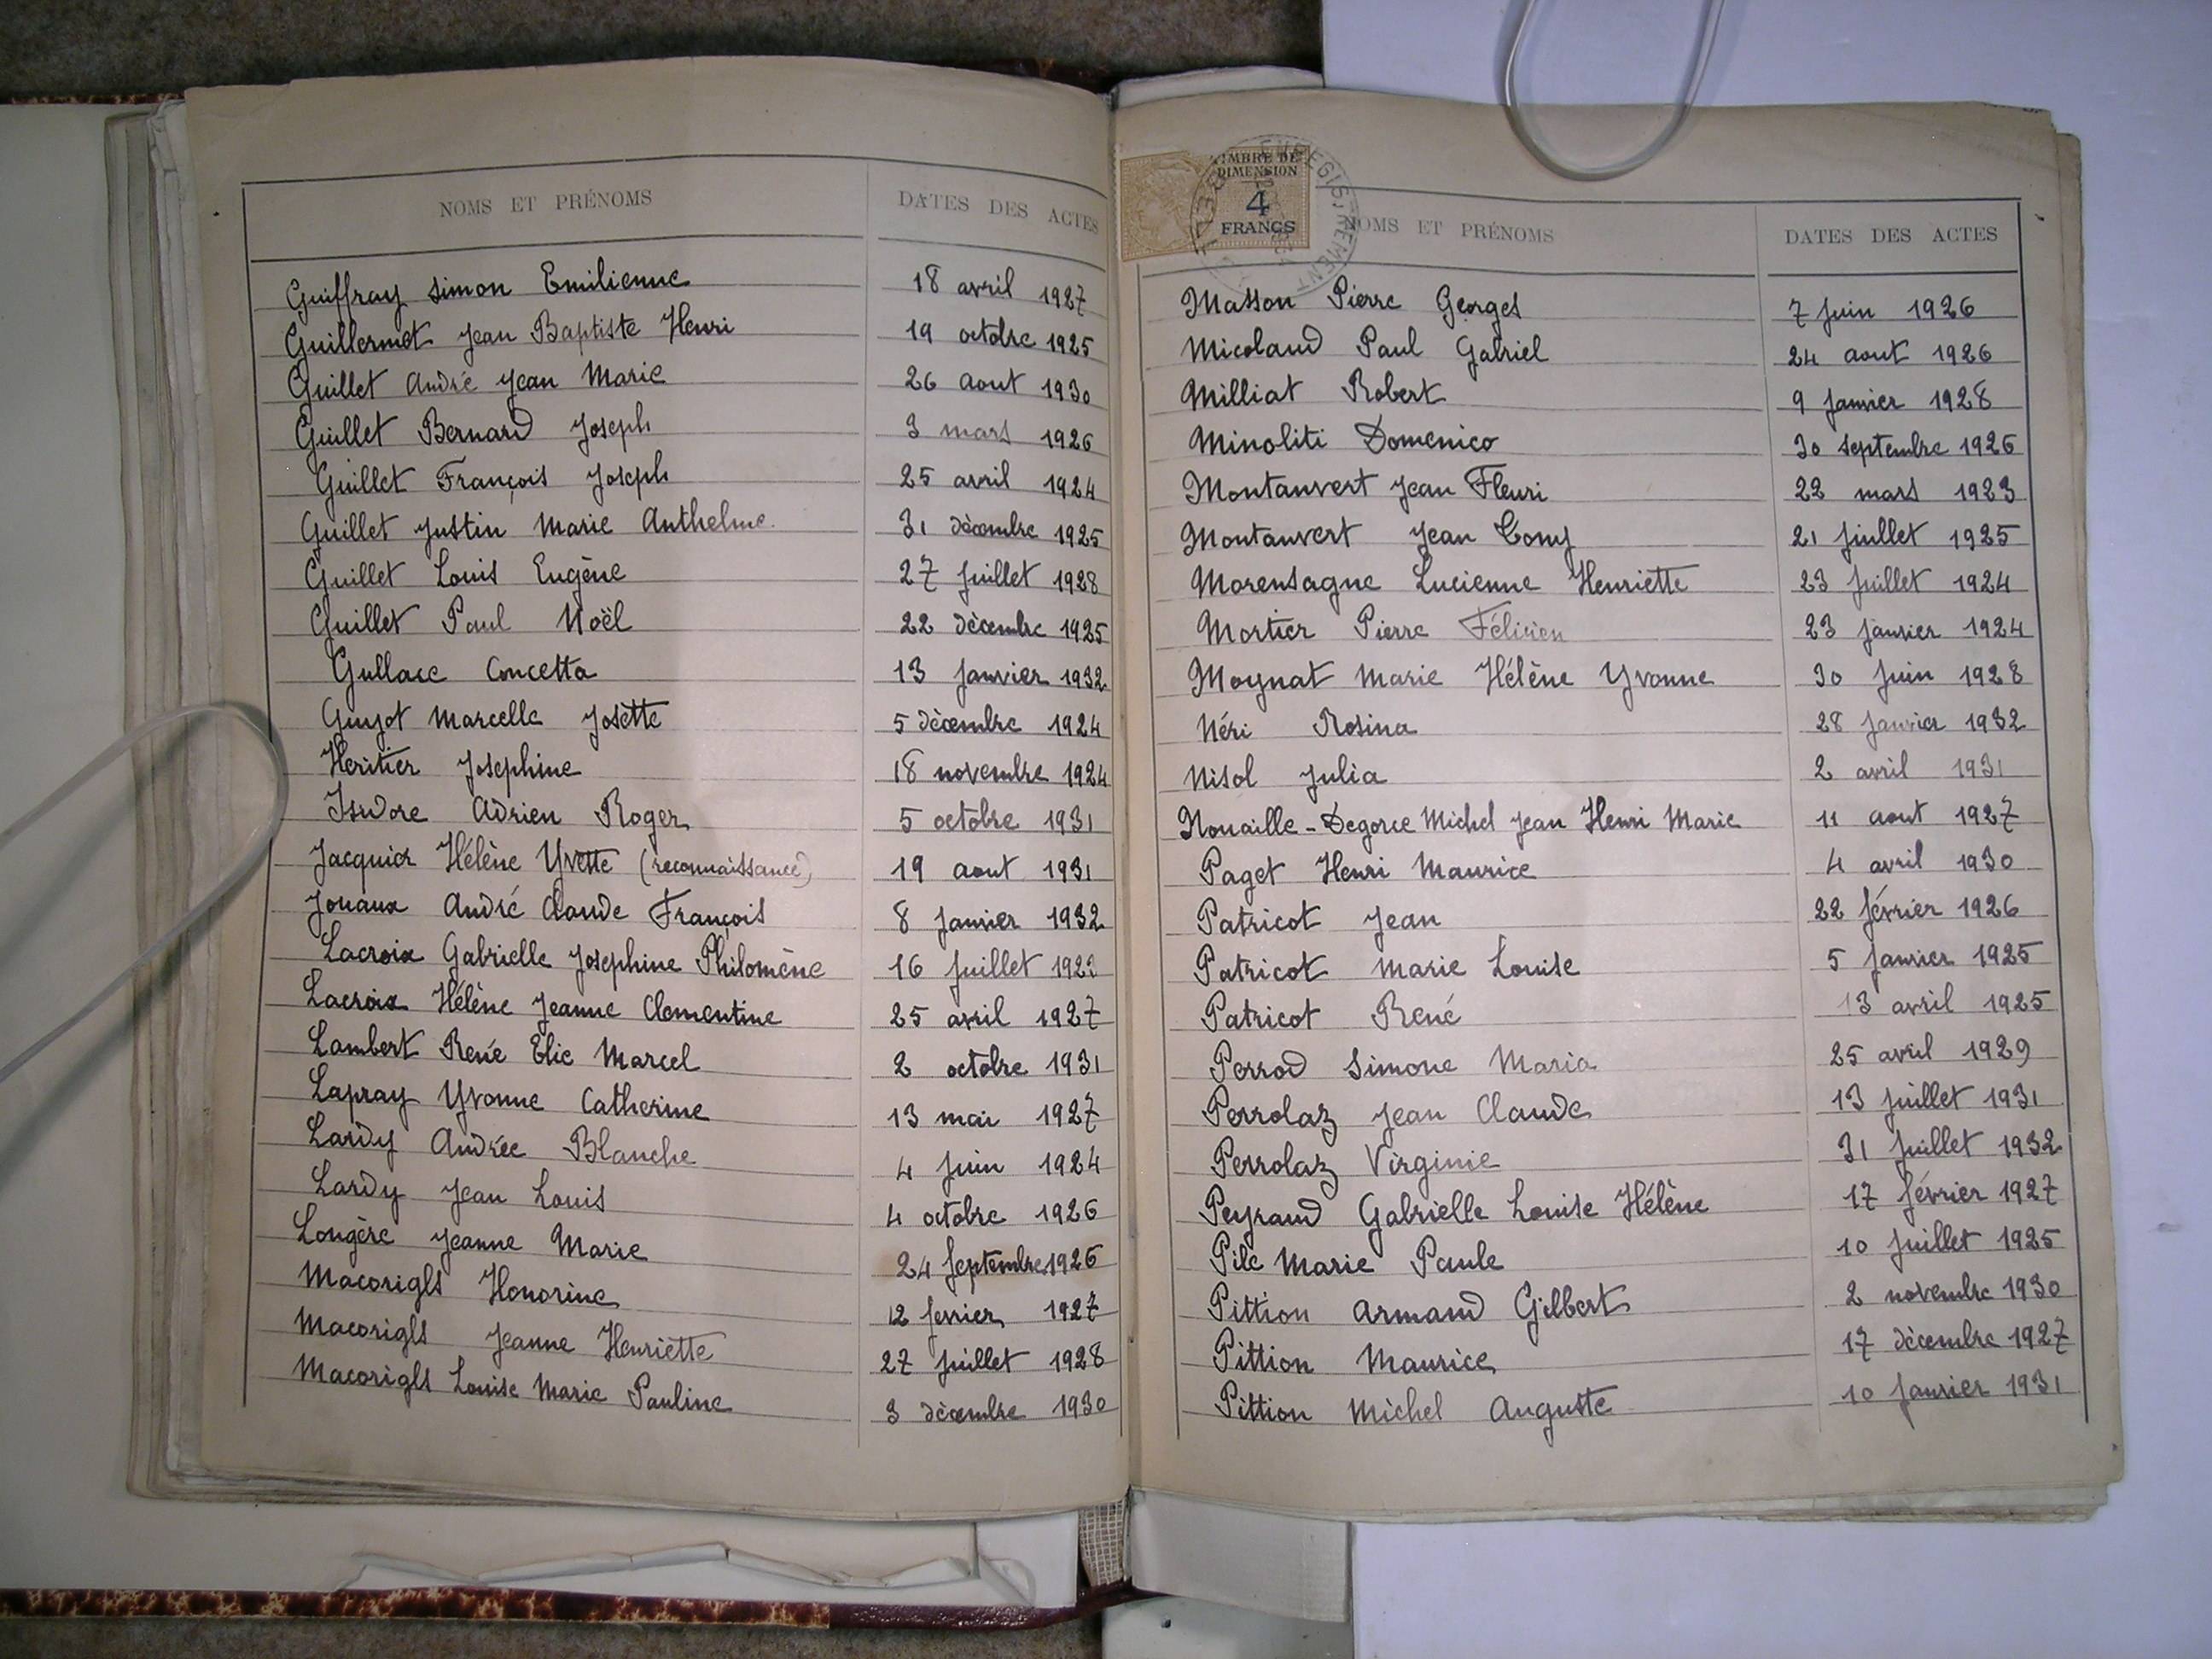 NOMS ET PRÉNOMS DATES DES ACTES
Guiffray Simon Emilienne 18 avril 1927
Guillermet Jean Baptiste Henri 19 octobre 1925
Guillet André Jean Marie 26 aout 1930
Guillet Bernard Joseph 3 mars 1926
Guillet François Joseph 25 avril 1924
Guillet Justin Marie Anthelme 31 décembre 1925
Guillet Louis Eugène 27 Juillet 1928
Guillet Paul Noël 22 décembre 1925
Gullace Concetta 13 Janvier 1932
Guyot Marcelle Josette 5 décembre 1924
Heritier Josephine 18 novembre 1924
Isidore Adrien Roger 5 octobre 1931
Jacquier Hélène Yvette (reconnaissance) 19 aout 1931
Jouaux André Claude François 8 Janvier 1932
Lacroix Gabrielle Josephine Philomène 16 Juillet 1923
Lacroix Hélène Jeanne Clementine 25 avril 1927
Lambert René Elie Marcel 2 octobre 1931
Lapray Yvonne Catherine 13 mai 1927
Lardy Andrée Blanche 4 Juin 1924
Lardy Jean Louis 4 octobre 1926
Longère Jeanne Marie 24 Septembre 1926
Macorigls Honorine 12 fevrier 1927
Macorigls Jeanne Henriette 27 Juillet 1928
Macorigls Louise Marie Pauline 3 décembre 1930
TIMBRE DE
DIMENSION
4
FRANCS
ENREGISTREMENT
NOMS ET PRÉNOMS DATES DES ACTES
Masson Pierre Georges 7 Juin 1926
Micolaud Paul Gabriel 24 aout 1926
Milliat Robert 9 Janvier 1928
Minoliti Domenico 30 septembre 1926
Montanvert Jean Fleuri 22 mars 1923
Montanvert Jean Tony 21 Juillet 1925
Morensagne Lucienne Henriette 23 Juillet 1924
Mortier Pierre Félicien 23 Janvier 1924
Moynat Marie Hélène Yvonne 30 Juin 1928
Néri Rosina 28 Janvier 1932
Nisol Julia 2 avril 1931
Nouaille-Degorce Michel Jean Henri Marie 11 aout 1927
Paget Henri Maurice 4 avril 1930
Patricot Jean 22 février 1926
Patricot Marie Louise 5 Janvier 1925
Patricot René 13 avril 1925
Perrod Simone Maria 25 avril 1929
Perrolaz Jean Claude 13 Juillet 1931
Perrolaz Virginie 31 Juillet 1932
Peyraud Gabrielle Louise Hélène 17 février 1927
Pile Marie Paule 10 Juillet 1925
Pittion Armand Gilbert 2 novembre 1930
Pittion Maurice 17 décembre 1927
Pittion Michel Auguste 10 Janvier 1931